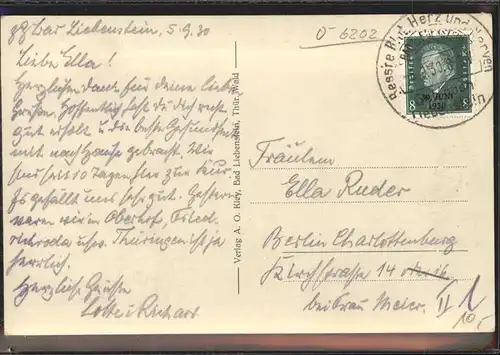 zZ. Bad Liebenstein, 5.9.30
Liebe Ella!
Herzlichen Dank für deine lieben
Grüsse. Hoffentlich hast du dich recht
gut erholt u. die beste Gesundheit
mit nach Hause gebracht. Wir
sind seit 10 Tagen hier zur Kur.
Es gefällt uns sehr gut. Gestern
waren wir in Oberhof, Fried-
richroda usw. Thüringen ist ja
herrlich.
Herzliche Grüsse
Lotte u. Richard
Verlag A. O. Bad Liebenstein, Thür. Wald
6202
Herz und Nerven
8 30. JUNI 1930 8
Fräulein
Ella Ruder
Berlin Charlottenburg
Kirchstrasse 14
bei Frau Meier. II
10,-